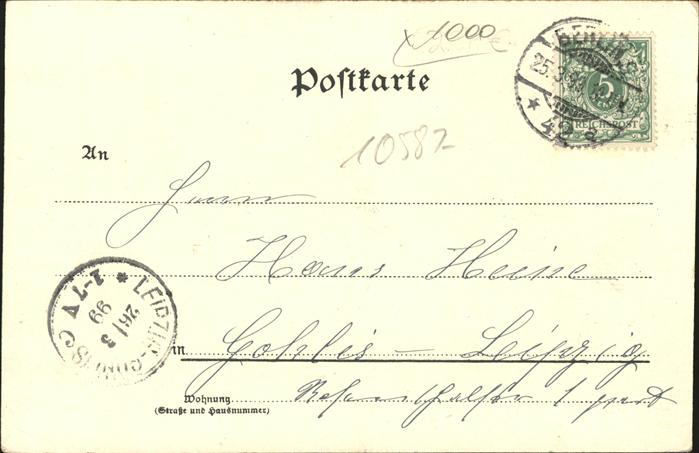 1000
Postkarte
BERLIN
25.3.99
* 42 a
5
REICHSPOST
10587
An
Herrn
Hans Heine
LEIPZIG-GOHLIS *
26/3
99
1-7 V
in Gohlis – Leipzig
Wohnung
(Straße und Hausnummer)
1 part